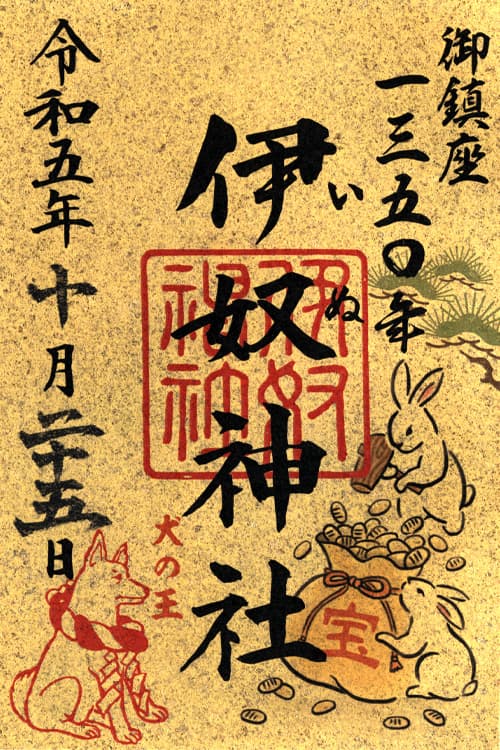 御鎮座
一三五〇年
伊奴神社
いぬ
伊奴
神社
宝
犬の王
令和五年十月二十五日